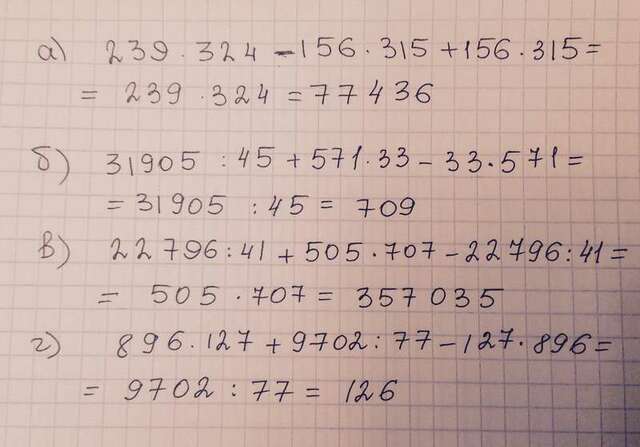 а) 239 · 324 - 156 · 315 + 156 · 315 =
= 239 · 324 = 77436
б) 31905 : 45 + 571 · 33 - 33 · 571 =
= 31905 : 45 = 709
в) 22796 : 41 + 505 · 707 - 22796 : 41 =
= 505 · 707 = 357035
г) 896 · 127 + 9702 : 77 - 127 · 896 =
= 9702 : 77 = 126